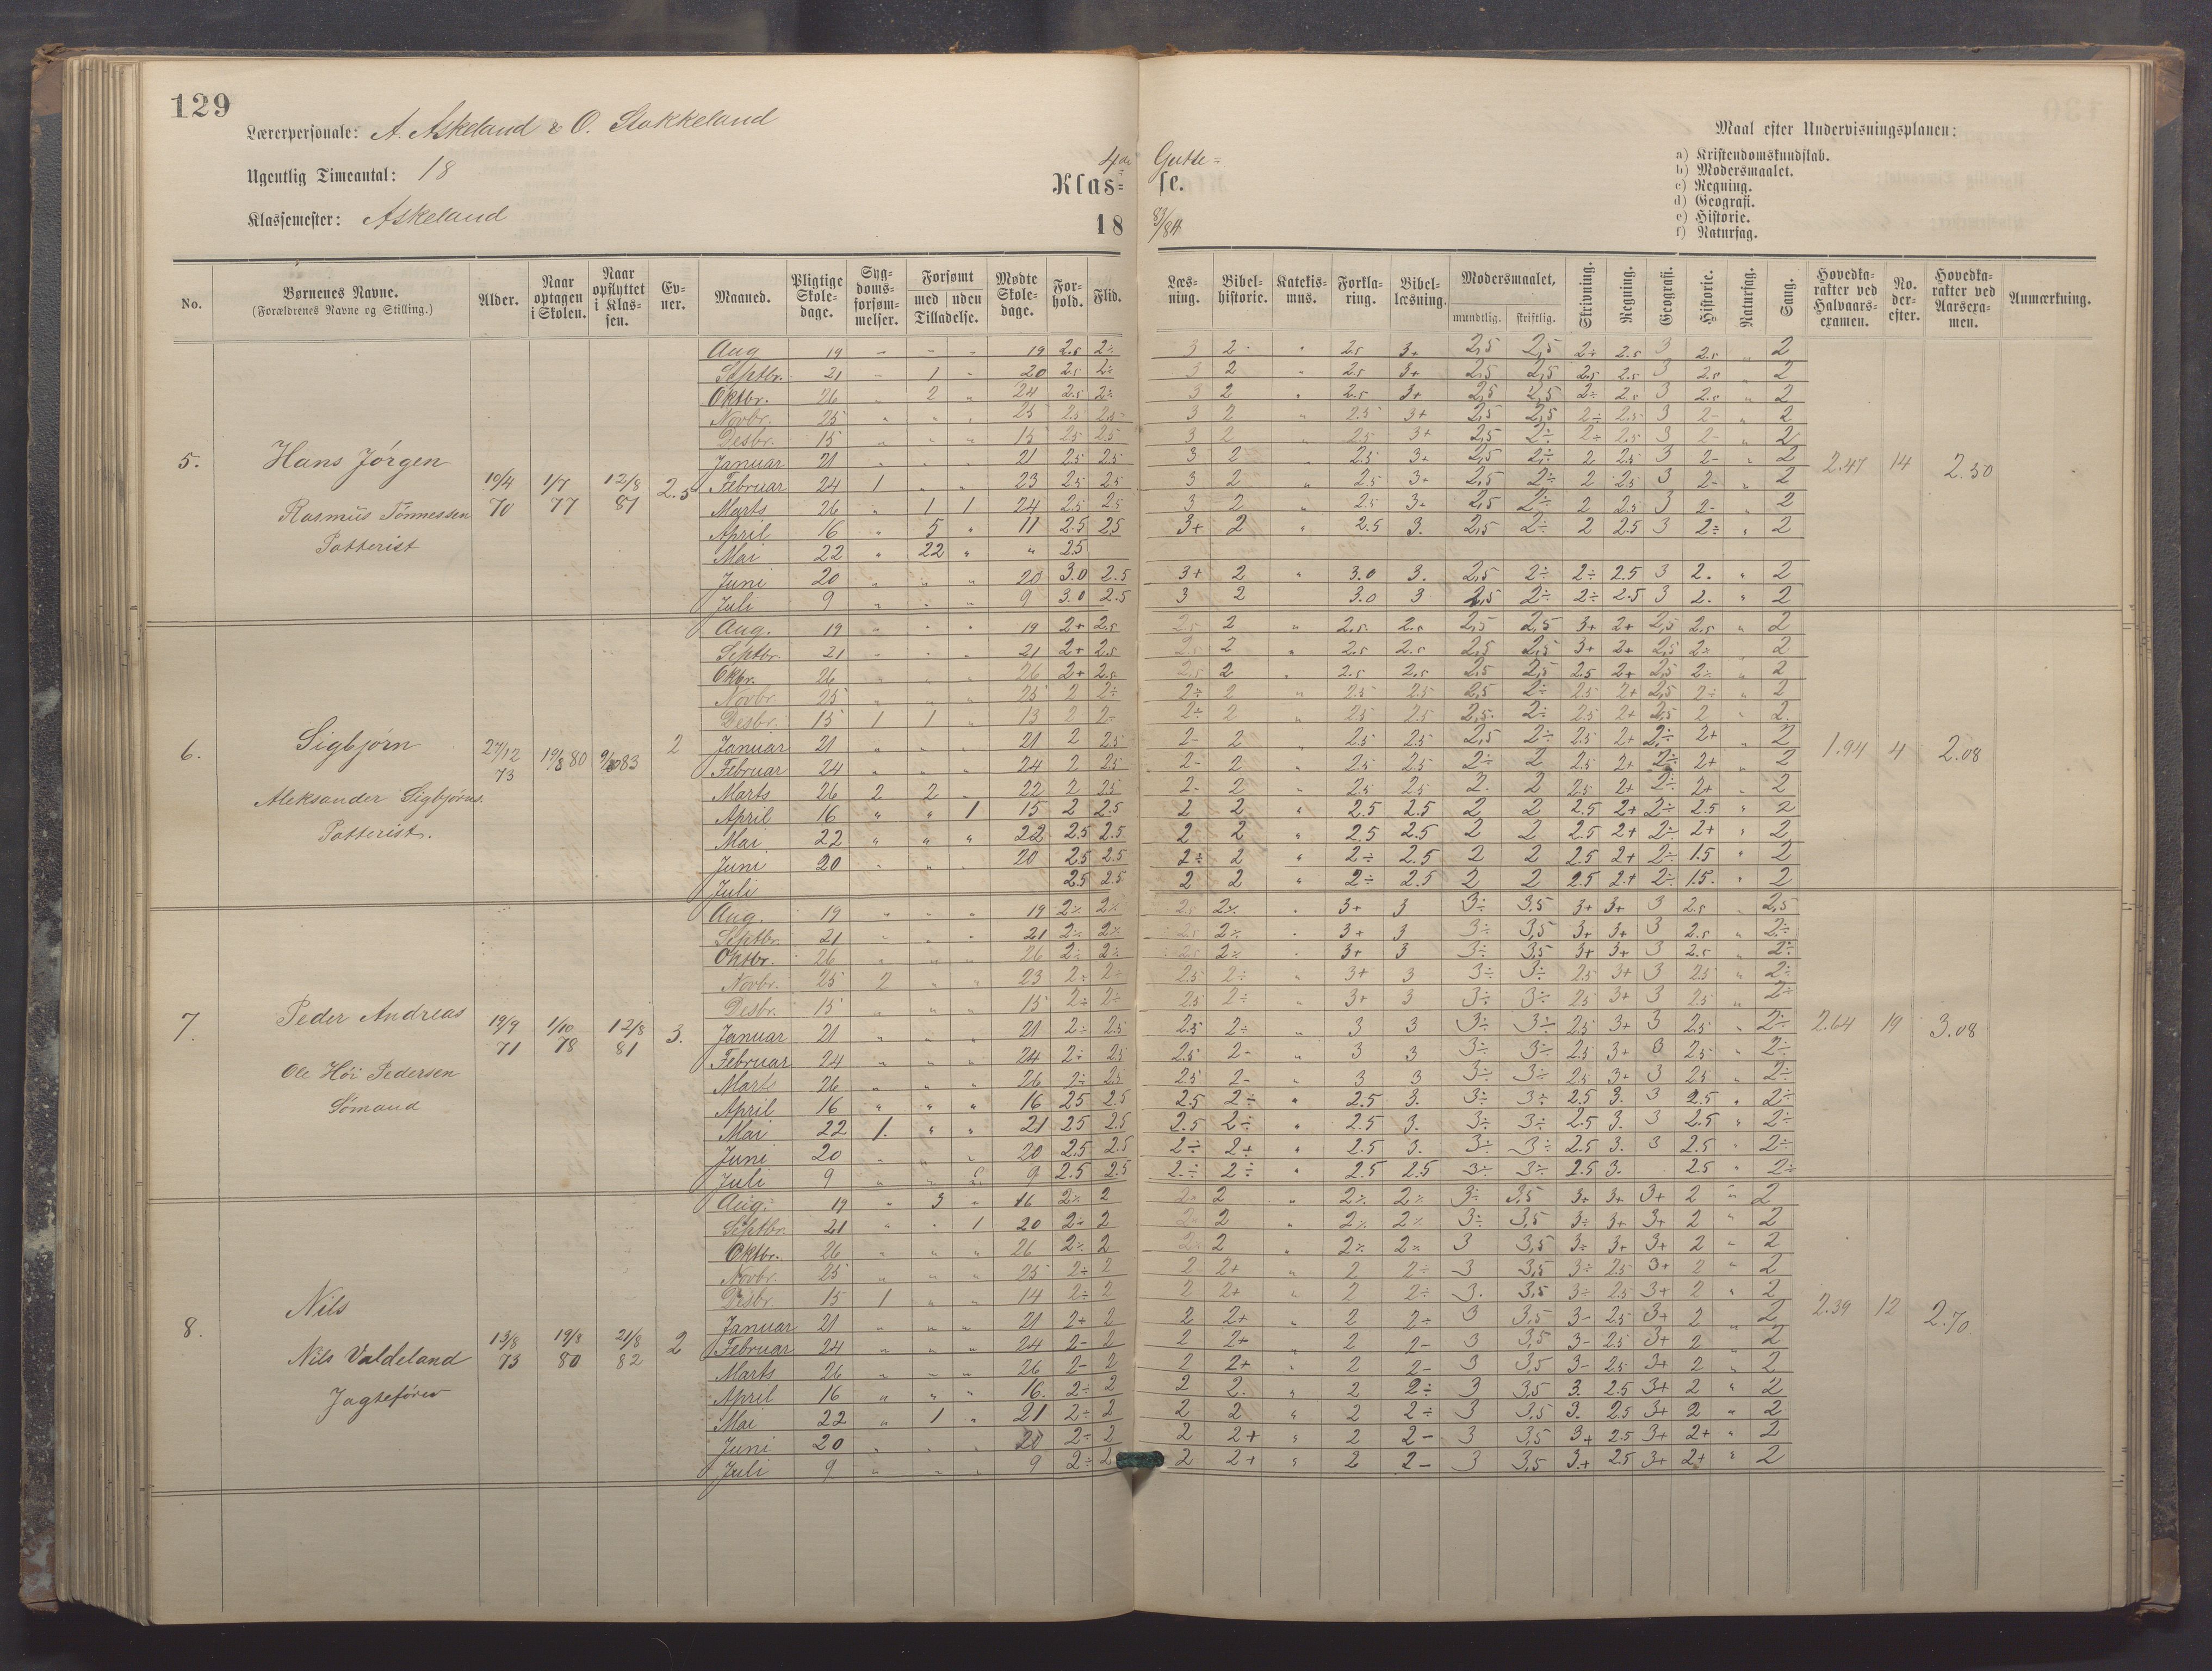 129
Lærerpersonale: A. Askeland & O. Stokkeland
Ugentlig Timeantal: 18
Klassemester: Askeland
4de Gutte=
Klas= se.
18 83/84
Maal efter Undervisningsplanen:
a) Kristendomskundskab.
b) Modersmaalet.
c) Regning.
d) Geografi.
e) Historie.
f) Naturfag.
No. | Børnenes Navne. (Forældrenes Navne og Stilling.) | Alder. | Naar optagen i Skolen. | Naar opflyttet i Klassen. | Evner. | Maaned. | Pligtige Skoledage. | Sygdomsforsømmelser. | Forsømt med / uden Tilladelse. | Mødte Skoledage. | Forhold. | Flid. | Læsning. | Bibelhistorie. | Katekismus. | Forklaring. | Bibellæsning. | Modersmaalet, mundtlig. | skriftlig. | Skrivning. | Regning. | Geografi. | Historie. | Naturfag. | Sang. | Hovedkarakter ved Halvaarsexamen. | No. derefter. | Hovedkarakter ved Aarsexamen. | Anmærkning.
5. Hans Jörgen
Rasmus Tönnessen
Fatterist
10/4 70 | 1/7 77 | 12/8 81 | 2.5
Aug 19 " " " 19 2.5 2÷ 3 2- " 2.5 3+ 2,5 2,5 2÷ 2.5 3 2.5 " 2
Septbr. 21 " 1 " 20 2.5 2÷ 3 2 " 2.5 3+ 2,5 2,5 2.5 2.5 3 2.5 " 2
Oktbr. 26 " 2 " 24 2.5 2÷ 3 2 " 2.5 3+ 2,5 2,5 2÷ 2.5 3 2.5 " 2
Novbr. 25 " " " 25 2.5 2.5 3 2 " 2.5 3+ 2,5 2,5 2÷ 2.5 3 2- " 2
Desbr. 15 " " " 15 2.5 2.5 3 2 " 2.5 3+ 2,5 2÷ 2÷ 2.5 3 2- " 2
Januar 21 " " " 21 2.5 2.5 3 2 " 2.5 3+ 2,5 2÷ 2 2.5 3 2- " 2
Februar 24 1 " " 23 2.5 2.5 3 2 " 2.5 3+ 2,5 2÷ 2 2.5 3 2- " 2
Marts 26 " 1 1 24 2.5 2.5 3 2 " 2.5 3+ 2,5 2÷ 2 2.5 3 2- " 2
April 16 " 5 " 11 2.5 2.5 3+ 2 " 2.5 3. 2,5 2÷ 2 2.5 3 2÷ " 2
Mai 22 " 22 " " 2.5
Juni 20 " " " 20 3.0 2.5 3+ 2 " 3.0 3. 2,5 2÷ 2÷ 2.5 3 2. " 2
Juli 9 " " " 9 3.0 2.5 3 2 3.0 3 2,5 2÷ 2÷ 2.5 3 2. " 2
2.47 | 14 | 2.50
6. Sigbjörn
Aleksander Sigbjörns.
Fatterist.
27/12 73 | 19/8 80 | 83 | 2
Aug. 19 " " " 19 2+ 2.5 2.5 2 " 2.5 2.5 2,5 2,5 3+ 2+ 2,5 2.5 " 2
Septbr. 21 " " " 21 2+ 2.5 2.5 2 " 2.5 2.5 2,5 2,5 3+ 2+ 2,5 2÷ " 2
Oktbr. 26 " " " 26 2+ 2.5 2.5 2 " 2.5 2.5 2,5 2,5 2.5 2+ 2,5 2÷ " 2
Novbr 25 " " " 25 2 2÷ 2÷ 2 " 2.5 2.5 2,5 2÷ 2.5 2+ 2,5 2÷ " 2
Desbr. 15 1 1 " 13 2 2- 2÷ 2 " 2.5 2.5 2,5 2÷ 2.5 2+ 2,5 2 " 2.
Januar 21 " " " 21 2 2.5 2- 2 " 2.5 2.5 2,5 2÷ 2.5 2+ 2÷ 2+ " 2
Februar 24 " " " 24 2 2.5 2- 2 " 2.5 2.5 2÷ 2 2.5 2+ 2÷ 2+ " 2
Marts 26 2 2 " 22 2 2.5 2- 2 " 2.5 2.5 2. 2 2.5 2+ 2÷ 2+ " 2
April 16 " " 1 15 2 2.5 2 2 " 2.5 2.5 2 2 2.5 2+ 2÷ 2.5 " 2
Mai 22 " " " 22 2.5 2.5 2 2 " 2.5 2.5 2 2 2.5 2+ 2÷ 2+ " 2
Juni 20 " " " 20 2.5 2.5 2÷ 2 " 2÷ 2.5 2 2 2.5 2+ 2÷ 1.5 " 2
Juli 2.5 2.5 2 2 " 2÷ 2.5 2 2 2.5 2+ 2÷ 1.5. " 2
1.94 | 4 | 2.08
7. Peder Andreas
Ole Höi Pedersen
Sömand
19/9 71 | 1/10 78 | 12/8 81 | 3.
Aug. 19 " " " 19 2÷ 2÷ 2.5 2÷ " 3+ 3 3÷ 3,5 3+ 3+ 3 2.5 " 2,5
Septbr. 21 " " " 21 2÷ 2÷ 2.5 2÷ " 3+ 3 3÷ 3,5 3+ 3+ 3 2.5 " 2÷
Oktbr. 26 " " " 26 2÷ 2÷ 2.5 2÷ " 3+ 3 3÷ 3,5 3+ 3+ 3 2.5 " 2÷
Novbr. 25 2 " " 23 2÷ 2÷ 2.5 2÷ " 3+ 3 3÷ 3÷ 2.5 3+ 3 2.5 " 2÷
Desbr. 15 " " " 15 2÷ 2÷ 2.5 2÷ " 3+ 3 3÷ 3÷ 2.5 3+ 3 2.5 " 2÷
Januar 21 " " " 21 2÷ 2.5 2.5 2÷ " 3 3 3÷ 3÷ 2.5 3+ 3 2.5 " 2÷
Februar 24 " " " 24 2÷ 2.5 2.5 2- " 3 3 3÷ 3÷ 2.5 3+ 3 2.5 " 2÷
Marts 26 " " " 26 2÷ 2.5 2.5 2- " 3 3 3÷ 3÷ 2.5 3+ 3 2.5 " 2÷
April 16 " " " 16 2.5 2.5 2.5 2÷ " 2.5 3. 3÷ 3÷ 2.5 3. 3 2.5 " 2÷
Mai 22 1. " " 21 2.5 2.5 2.5 2÷ " 2.5 3. 3÷ 3÷ 2.5 3. 3 2.5 " 2÷
Juni 20 " " " 20 2.5 2.5 2÷ 2+ " 2.5 3. 3÷ 3÷ 2.5 3. 3 2.5 " 2÷
Juli 9 " " " 9 2.5 2.5 2÷ 2÷ " 2.5 2.5 3÷ 3÷ 2.5 3. 2.5 " 2÷
2.64 | 19 | 3.08
8. Nils
Nils Valdeland
Jagtefører
13/8 73 | 19/8 80 | 21/8 82 | 2
Aug. 19 " 3 " 16 2÷ 2 2 " 2÷ 2÷ 3÷ 3,5 3+ 3+ 3+ 2 " 2
Septbr. 21 " " 1 20 2÷ 2 2 " 2÷ 2÷ 3÷ 3,5 3÷ 3+ 3+ 2 " 2
Oktbr. 26 " " " 26 2÷ 2 2 " 2÷ 2÷ 3 3,5 3÷ 3+ 3+ 2 " 2
Novbr. 25 " " " 25 2÷ 2 2 2+ " 2 2÷ 3 3,5 3÷ 2.5 3+ 2 " 2
Desbr. 15 1 " " 14 2÷ 2 2 2+ " 2 2÷ 3. 3,5 3÷ 2.5 3+ 2 " 2
Januar 21 " " " 21 2÷ 2 2 2+ " 2 2÷ 3 3,5 3- 2.5 3+ 2 " 2
Februar 24 " " " 24 2- 2 2 2+ " 2 2- 3 3,5 3- 2.5 3+ 2 " 2
Marts 26 " " " 26 2- 2 2 2+ " 2 2- 3 3,5 3- 2.5 3+ 2 " 2
April 16 " " " 16. 2÷ 2 2 2. " 2 2÷ 3 3,5 3. 2.5 3+ 2 " 2
Mai 22 " 1 " 21 2÷ 2 2 2 " 2 2÷ 3 3,5 3. 2.5 3+ 2 " 2
Juni 20 " " " 20 2÷ 2 2 2+ " 2 2- 3 3,5 3+ 2.5 3+ 2+ " 2
Juli 9 " " " 9 2÷ 2 2 2+ " 2 2- 3 3,5 3+ 2.5 3+ 2+ " 2
2.39 | 12 | 2.70